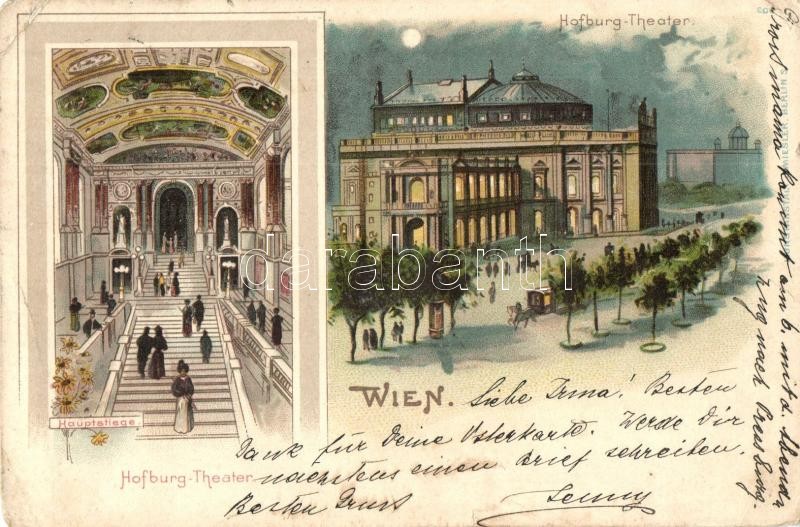 Hofburg-Theater.
Hauptstiege.
Hofburg-Theater
WIEN.
Liebe Irma! Besten
Dank für Deine Osterkarte. Werde Dir
nächstens einen Brief schreiben.
Besten Gruß
Jenny
mama kommt am 6. mit d. Abend
Zug nach
darabanth